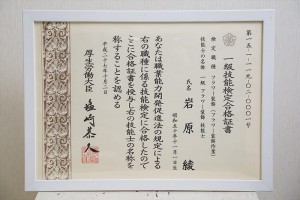 第一五-一-一九-〇二-〇〇〇一号
一級技能検定合格証書
検定職種 フラワー装飾(フラワー装飾作業)
技能士の名称 一級フラワー装飾技能士
氏名 岩原 綾
昭和五十年十一月一日生
あなたは職業能力開発促進法の規定による
右の職種に係る技能検定に合格したので
ここに合格証書を授与し右の技能士の名称を
称することを認める
平成二十七年十月二日
厚生労働大臣 塩崎恭久